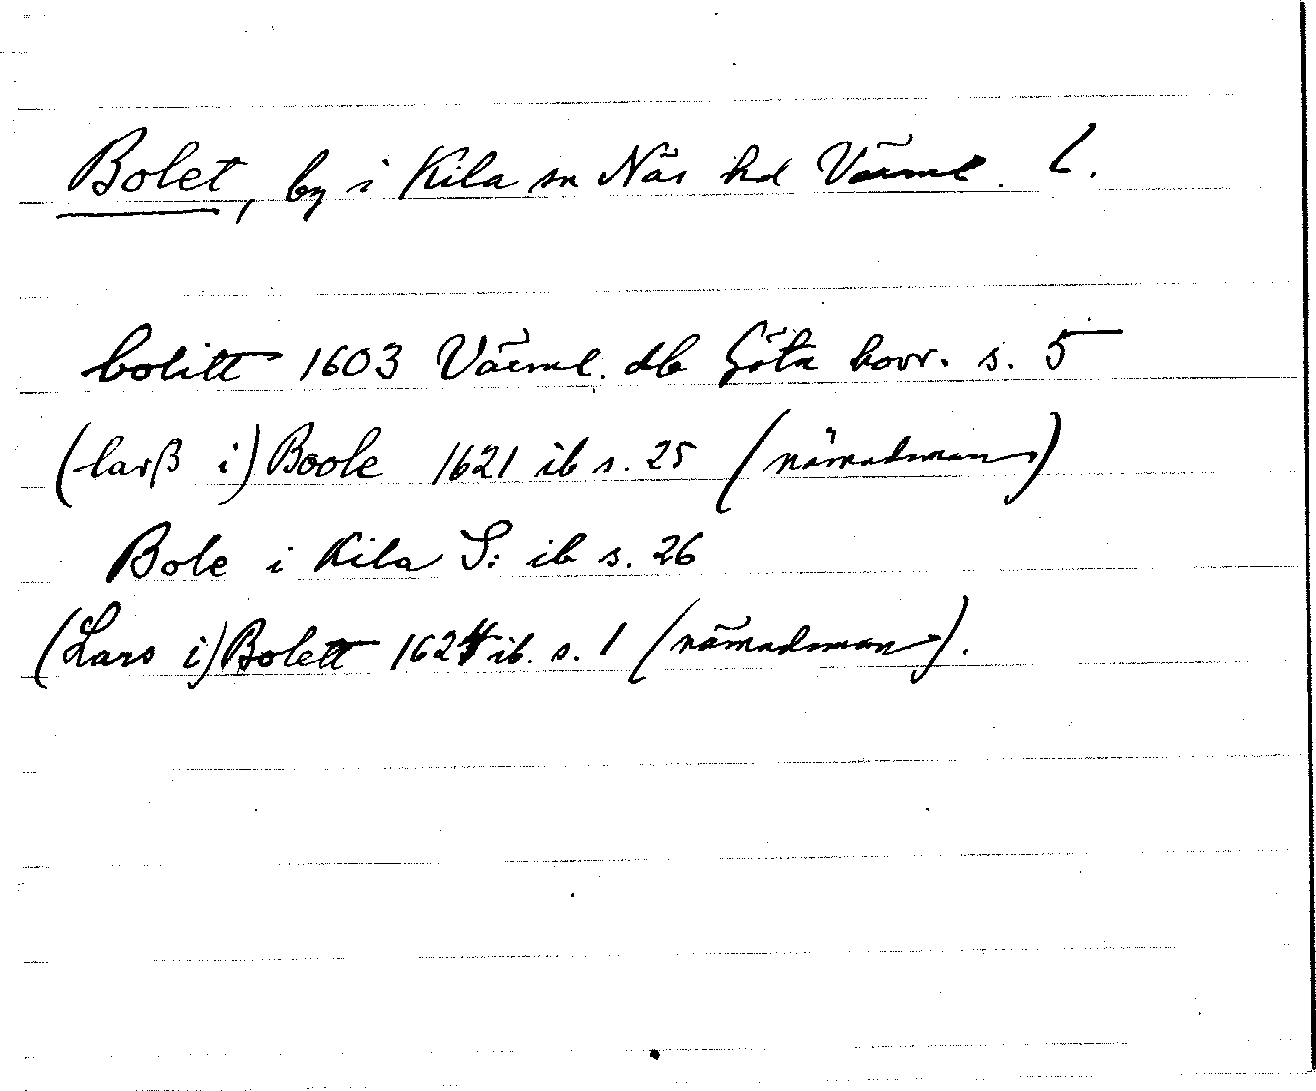 Bolet, by i Kila sn Näs hd Värml. l.
bolitt 1603 Värml. db Göta hovr. s. 5
(larß i) Boole 1621 ib s. 25 (nämndeman)
Bole i Kila S: ib s. 26
(Lars i) Bolett 1624 ib. s. 1 (nämndeman).